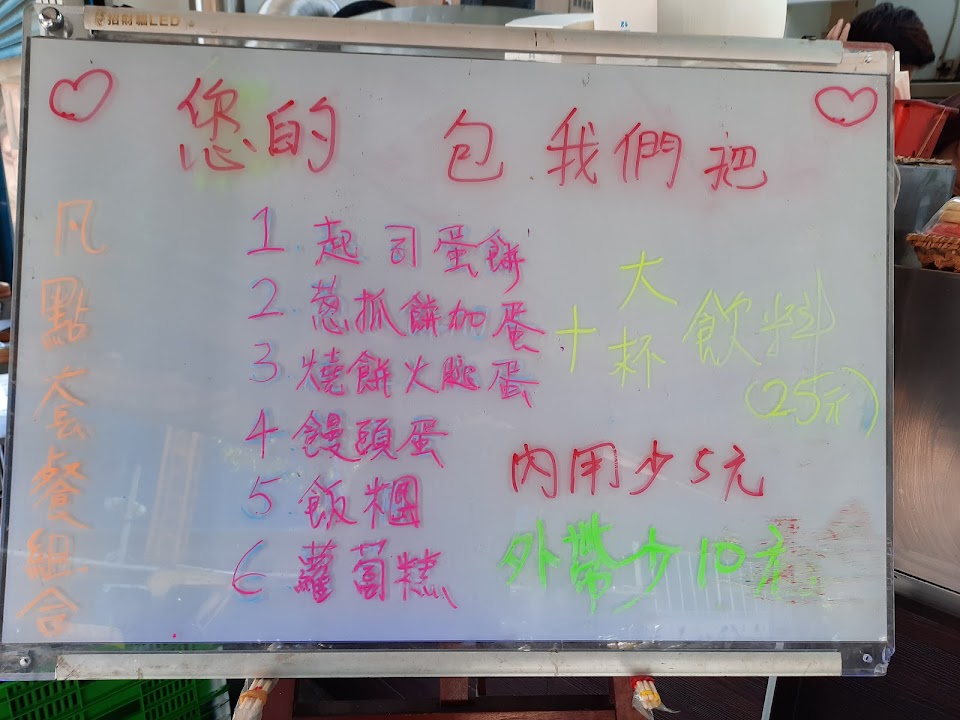 招財貓LED
您的 包 我們把
凡點套餐組合
1 起司蛋餅
2 葱抓餅加蛋
3 燒餅火腿蛋
4 饅頭蛋
5 飯糰
6 蘿蔔糕
+大杯飲料
(25元)
內用少5元
外帶少10元